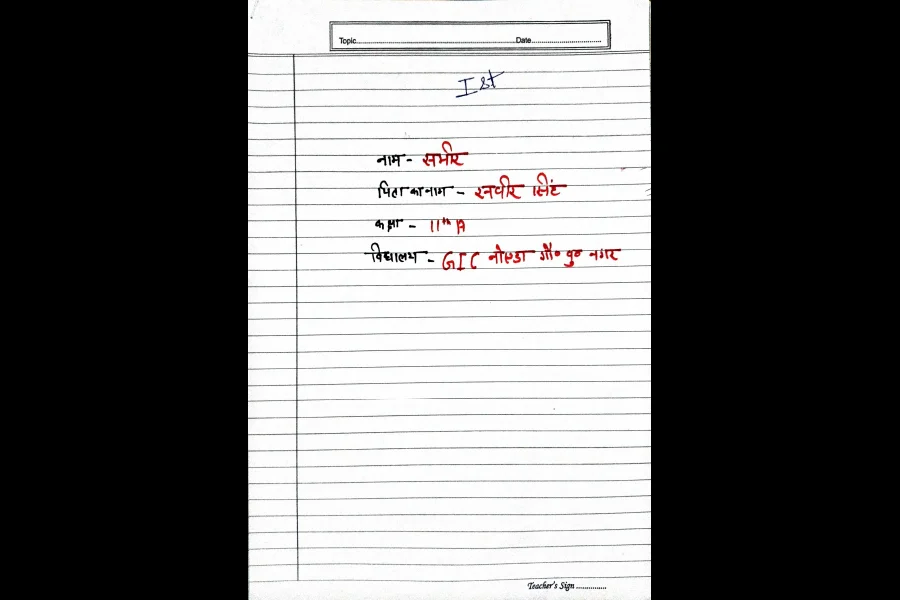 Topic..............................Date..............................
Ist
नाम - समीर
पिता का नाम - रनवीर सिंह
कक्षा - 11th A
विद्यालय - GIC नोएडा गौ० बु० नगर
Teacher's Sign ..............